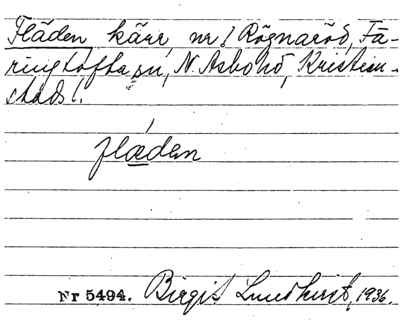 Fläden kärr, nr 1 Rögnaröd, Fä-
ringtofta sn, N. Åsbo hd, Kristian-
stads l.
flæden
Nr 5494. Birgit Lundkvist, 1936.